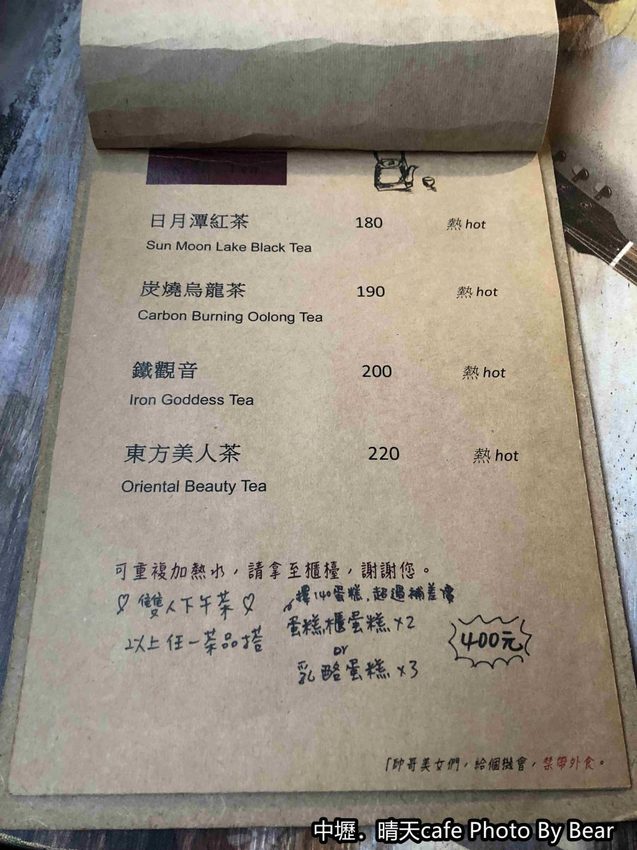 日月潭紅茶 180 熱 hot
Sun Moon Lake Black Tea
炭燒烏龍茶 190 熱 hot
Carbon Burning Oolong Tea
鐵觀音 200 熱 hot
Iron Goddess Tea
東方美人茶 220 熱 hot
Oriental Beauty Tea
可重複加熱水，請拿至櫃檯，謝謝您。
♡ 雙人下午茶 ♡
擇140蛋糕.超過補差價
以上任一茶品搭
蛋糕櫃蛋糕×2
or
乳酪蛋糕×3
400元
「帥哥美女們，給個機會，禁帶外食。
中壢．晴天cafe Photo By Bear